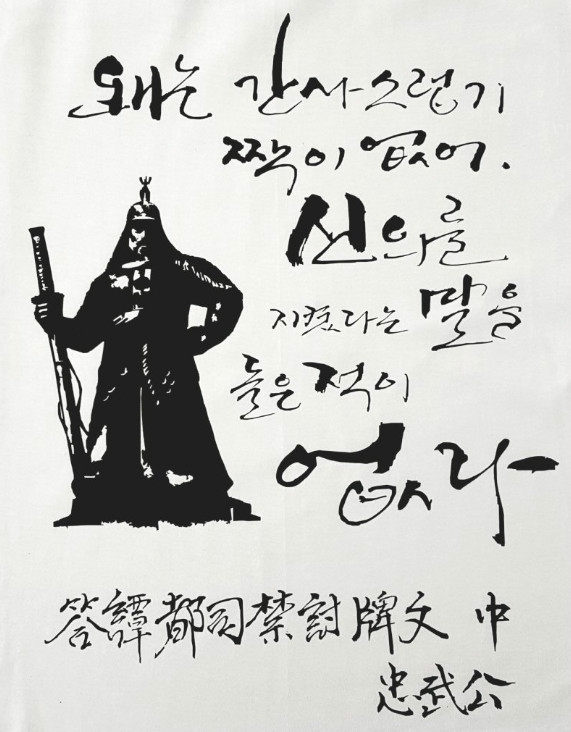 왜는 간사스럽기
짝이 없어.
신의를
지켰다는 말을
들은 적이
없다
答譚都司禁討牌文 中
忠武公